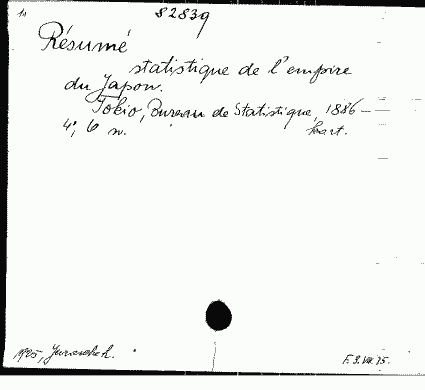 82839
Résumé
statistique de l'empire
du Japon.
Tokio, Bureau de Statistique, 1886 —
4°, 6 n. kart.
1925,
F. 9. VIII. 75.